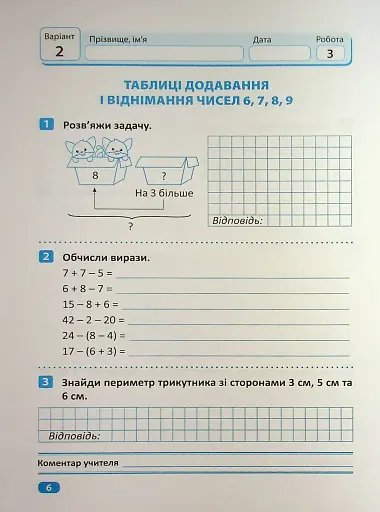 Варіант
2
Прізвище, ім'я
Дата
Робота
3
ТАБЛИЦІ ДОДАВАННЯ
І ВІДНІМАННЯ ЧИСЕЛ 6, 7, 8, 9
1 Розв'яжи задачу.
8
?
На 3 більше
?
Відповідь:
2 Обчисли вирази.
7 + 7 – 5 =
6 + 8 – 7 =
15 – 8 + 6 =
42 – 2 – 20 =
24 – (8 – 4) =
17 – (6 + 3) =
3 Знайди периметр трикутника зі сторонами 3 см, 5 см та
6 см.
Відповідь:
Коментар учителя
6